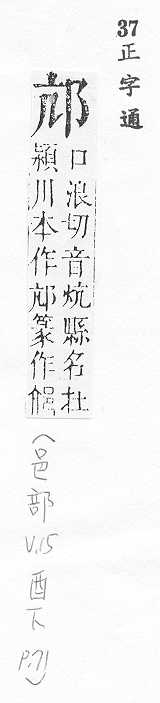 37正字通
邟
口浪切音炕縣名在
潁川本作邟篆作
(邑部 V.15 酉下 P.71)